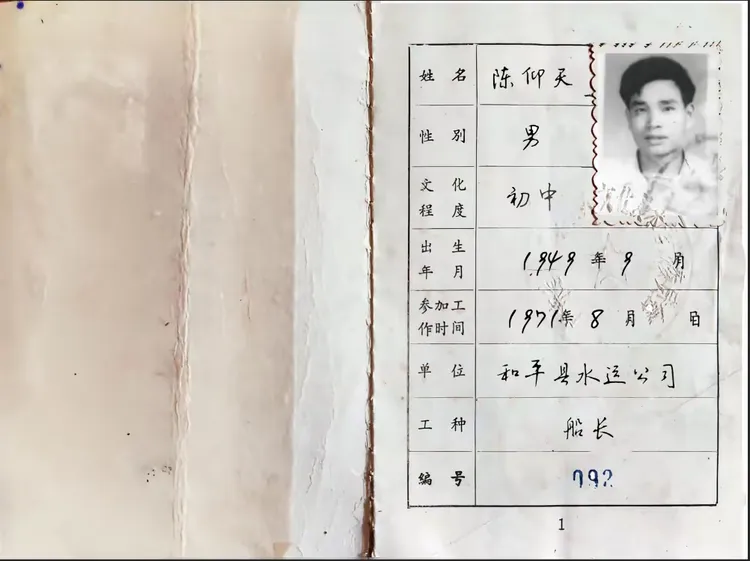 姓名 陈仰天
性别 男
文化程度 初中
出生年月 1949年9月
参加工作时间 1971年8月 日
单位 和平县水运公司
工种 船长
编号 092
1